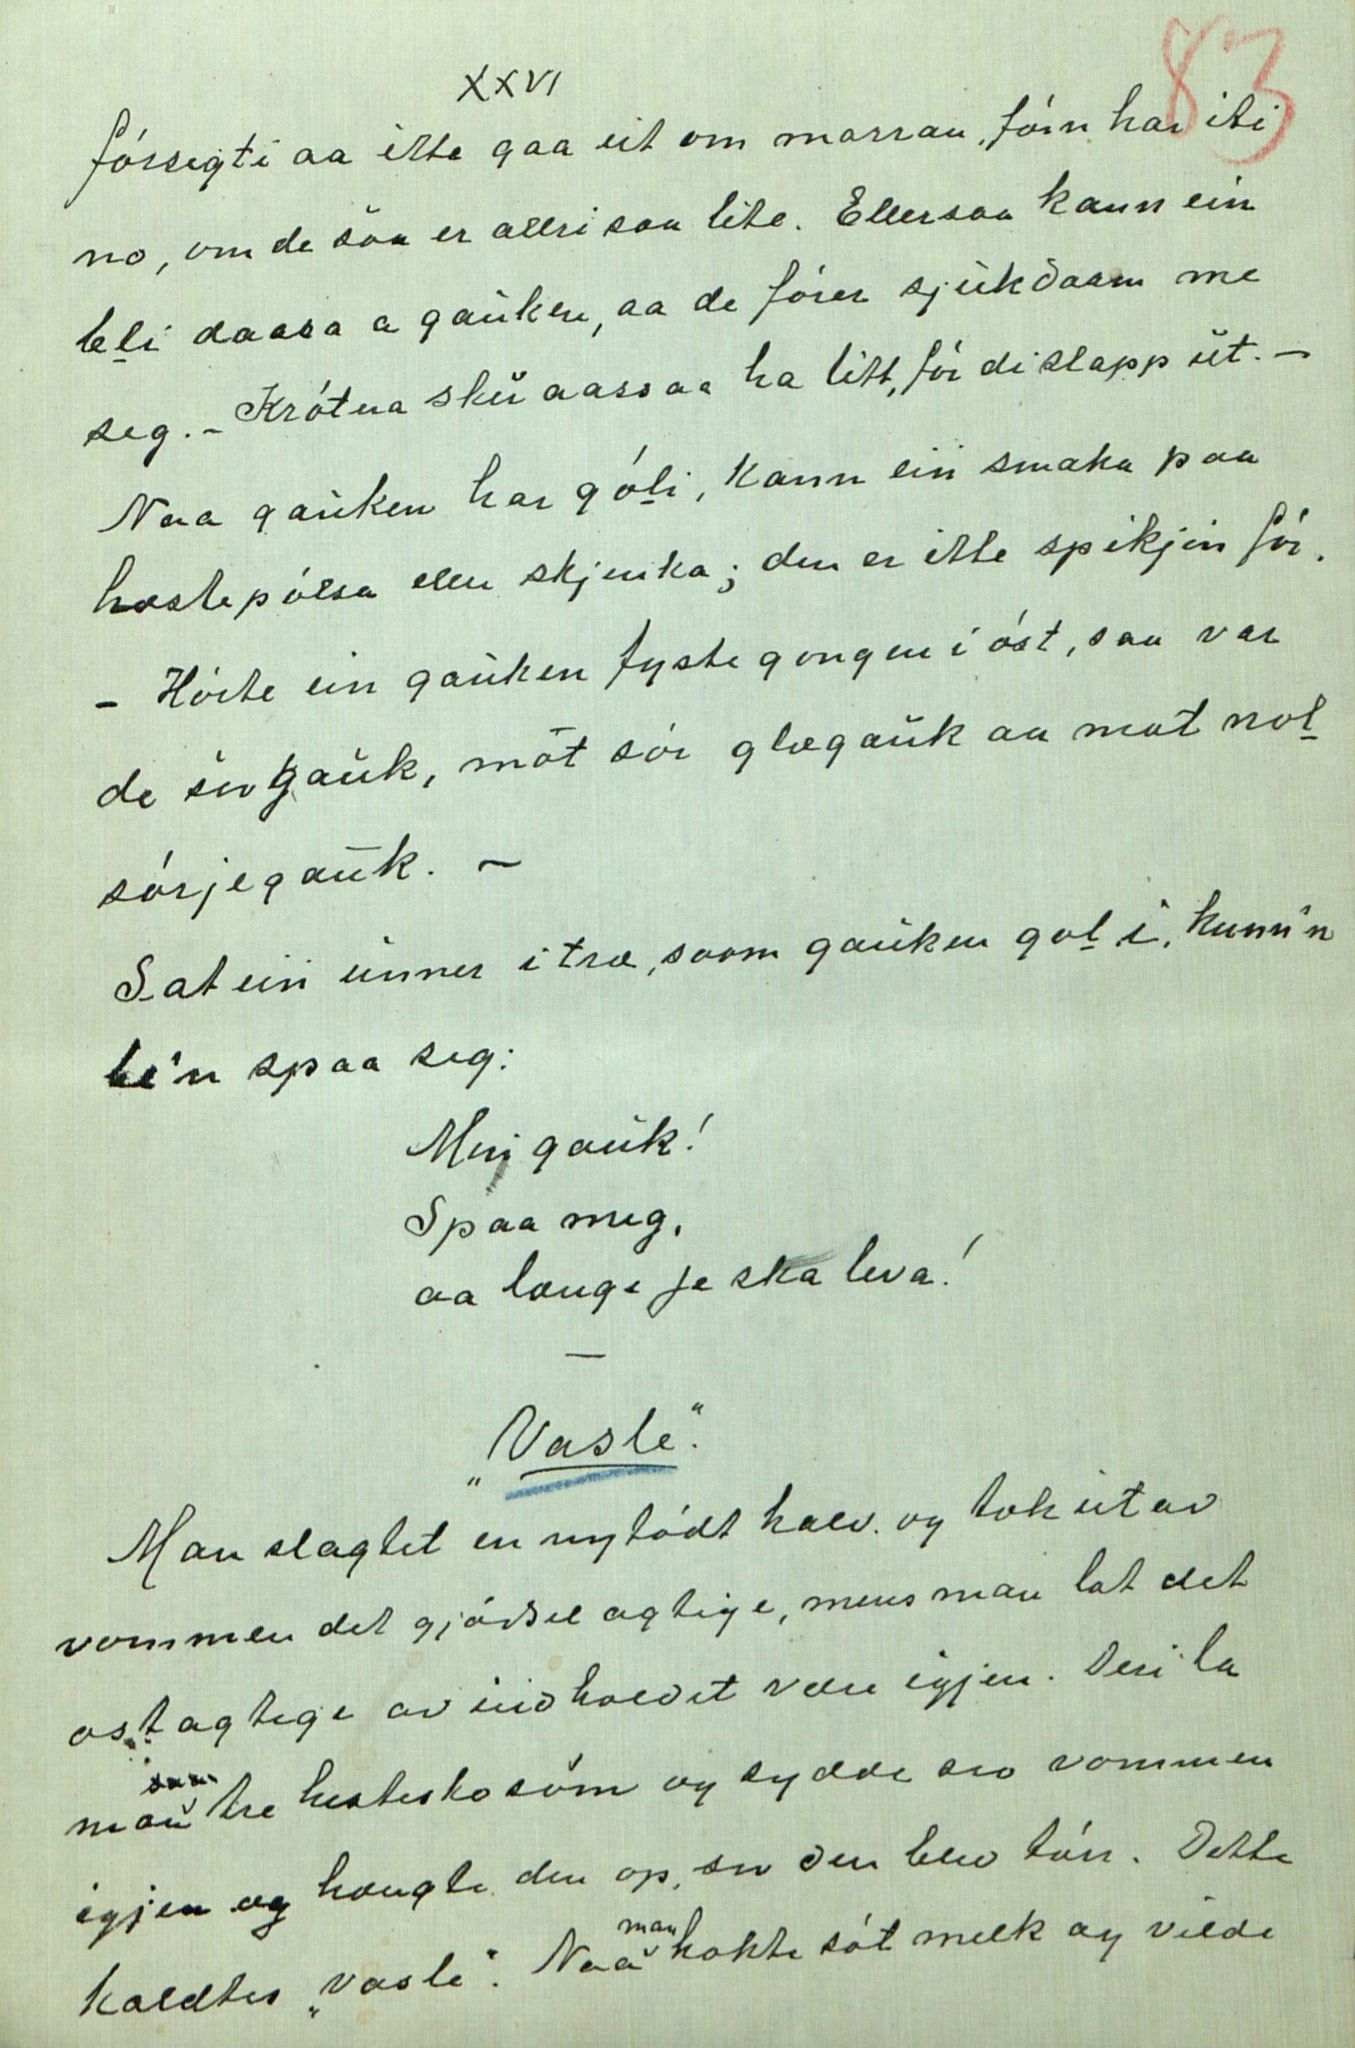 XXVI
83
fórsegti aa itte gaa ut om marran, fórn har iti
no, om de saa er allri saa lite. Ellersaa kann ein
bli daara a gauken, aa de fórer sjukdaam me
seg. - Krótua sku aassaa ha litt, fór di slapp ut. -
Naa gauken har góli, kann ein smaka paa
hæstepólsa eller skjenka; den er itte spikjin fór.
- Hórte ein gauken fyste gongen i óst, saa var
de sugauk, mot sór glægauk aa mot nol
sórjegauk. -
Sat ein unner i træ, soom gauken gol i, kunn'n
be'n spaa seg:
Min gauk!
Spaa meg,
aa længe je ska leva!
-
"Vasle".
Man slagtet en nyfódt kalv. og tok ut av
vommen det gjódselagtige, mens man lot det
ostagtige av indholdet være igjen. Deri la
man saa tre hestesko sóm og sydde saa vommen
igjen og hængte den op, sa den blev tórr. Dette
kaldtes "vasle". Naa man kokte sót melk og vilde